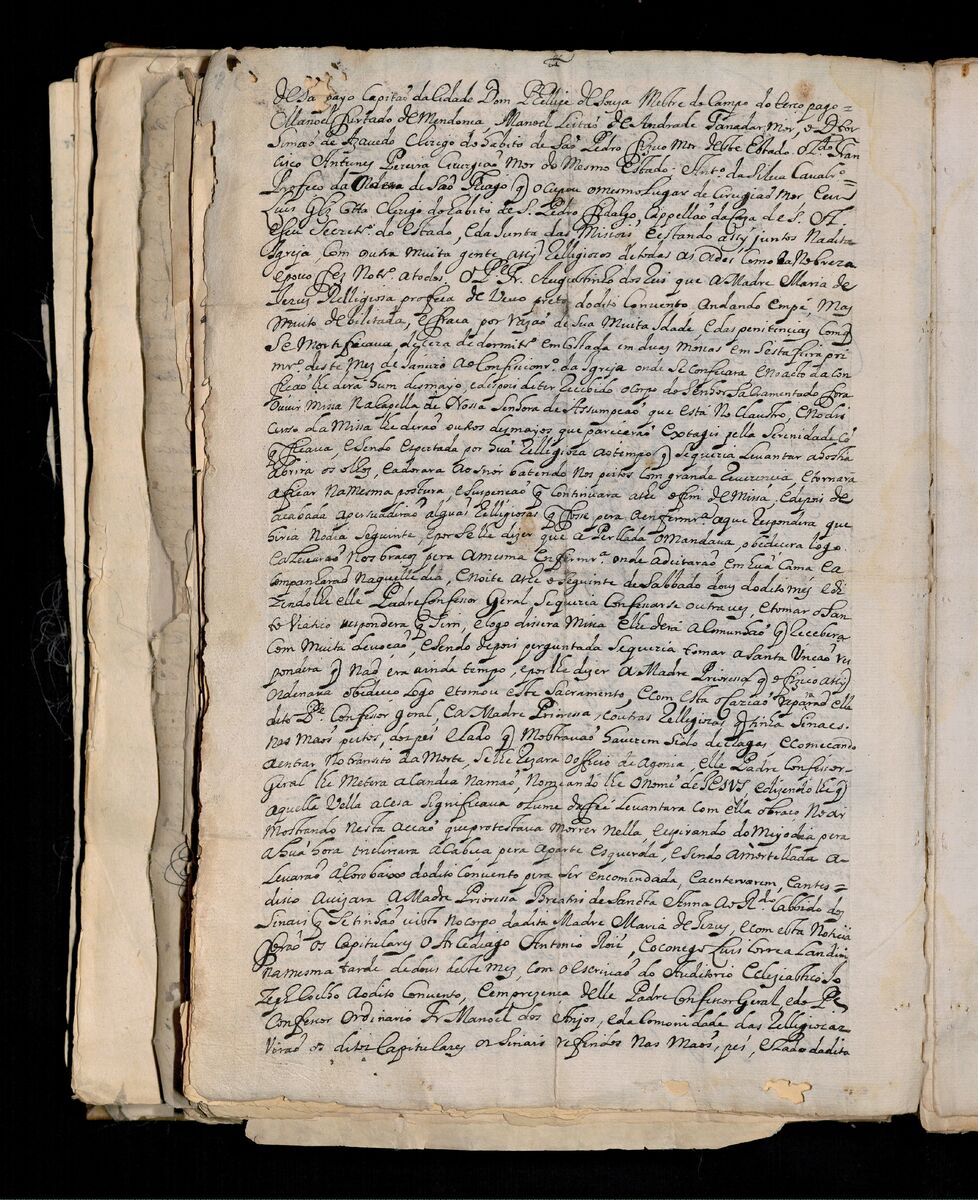 de Sa payo Capitaõ da Cidade Dom Phelipe de Souza Mestre do Campo do terço pago
Manoel furtado de Mendonça, Manoel Leitaõ de Andrade Tanadar Mor, o D.or
Simaõ de Azevedo Clerigo do habito de Saõ Pedro fizico Mor deste Estado, Fran
cisco Antunes Pereira Cirurgiaõ Mor do Mesmo Estado; Ant.o da Silva Cavalr.o
Professo da Ordem de Saõ Thiago q̃ occupou o mesmo lugar de Cirurgiaõ Mor, e eu
Luis Glz Cotta Clerigo do habito de S. Pedro fidalgo, Cappellaõ da Caza de S. A.
e seu Secretr.o do Estado, e da Junta das Missois, e estando assy juntos na dita
Igreja, com outra muita gente assy Relligiosos de todas as como da Nobreza
e povo fez Notr.o a todos o P.e Fr. Augustinho dos Reis que a Madre Maria de
Jezus Relligiosa professa de Veuo preto do dito Convento andando em pé, mas
muito debilitada, e fraca por rezaõ de sua muita Idade e das penitencias com q̃
se mortificava decera do dormitr.o emcostada em duas Moças em sesta feira pri
mr.o deste mez de Janeiro ao Confissionr.o da Igreja onde se Confeçara e no acto da con
ficaõ lhe dera hum desmayo, e depois de ter recebido o Corpo do Senhor Sacramentado fora
ouvir missa na Capella de Nossa Senhora de Assumpçaõ que está no Claustro, e no dis
curso da Missa lhe deraõ outros desmayos que pareceraõ extasis pella serenidade cõ
q̃ ficava, e sendo espertada por huã Relligioza ao tempo q̃ se queria levantar a hostia
abrira os olhos, e adorara ao Snor batendo nos peitos com grande reverencia, e tornara
a ficar na mesma postura, e suspençaõ q̃ continuara athe o fim de Missa, e depois de
acabada a persuadiraõ alguãs Relligiosas q̃ fosse pera a enfermr.a a que respondera que
hiria no dia seguinte, e por se lhe dizer que a Perllada o mandava, obedecera logo
e a levaraõ nos braços pera a mesma enfermr.a onde a deitaraõ em huã Cama e a
companharaõ naquelle dia, e noite athe o seguinte de Sabbado dous do dito mes e di
zendo lhe elle Padre Confessor Geral, se queria Confessarse outra ves, e tomar o San
to Viatico respondera q̃ sim, e logo dissera Missa e lhe dera a Comunhaõ q̃ recebera
com muita devoçaõ, e sendo depois perguntada se queria tomar a santa Unçaõ res
pondera q̃ naõ era ainda tempo, e por lhe dizer a Madre Prioressa q̃ o fizico assy
ordenara obedeceo logo e tomou este Sacramento, e com esta occaziaõ repararaõ elle
dito P.e Confessor Geral, e a Madre Prioressa, e outras Relligiozas q̃ tinha sinaes
nas maos, peitos, dos pes e lado q̃ mostravaõ haverem sido de chagas e comecando
a entrar no tranzito da Morte, se lhe rezara o officio de agonia, elle Padre Confessor
Geral lhe metera a candea na maõ, nomeando lhe o nome de JESVS e dizendo lhe q̃
aquella Vella acesa significava o lume da fee levantara com ella o braço no ar
mostrando nesta acçaõ que protestava morrer nella e espirando do meyo dia pera
a huá hora inclinara a cabeça pera a parte esquerda, e sendo amortelhada a
levaraõ ao Coro baxo do dito Convento pera ser encomendada, e a enterrarem, e antes
disto avizara a Madre Prioressa Breatris de Sancta Anna ao R.do Cabbido dos
Sinais q̃ se tinhaõ visto no corpo da dita Madre Maria de Jezus, e com esta noticia
foraõ os Capitulares o Arcediago Antonio Roiz, e o conego Luis Correa Landim
na mesma tarde de dous deste mez com o escrivaõ do Auditorio Eclesiastico Jo
zeph Coelho ao dito Convento, e em prezença delle Padre Confessor Geral, e do P.e
Confessor Ordinario Fr Manoel dos Anjos, e da Comonidade das Relligiozas
viraõ os ditos Capitulares os sinais referidos nas maõs, pes, e lado da dita